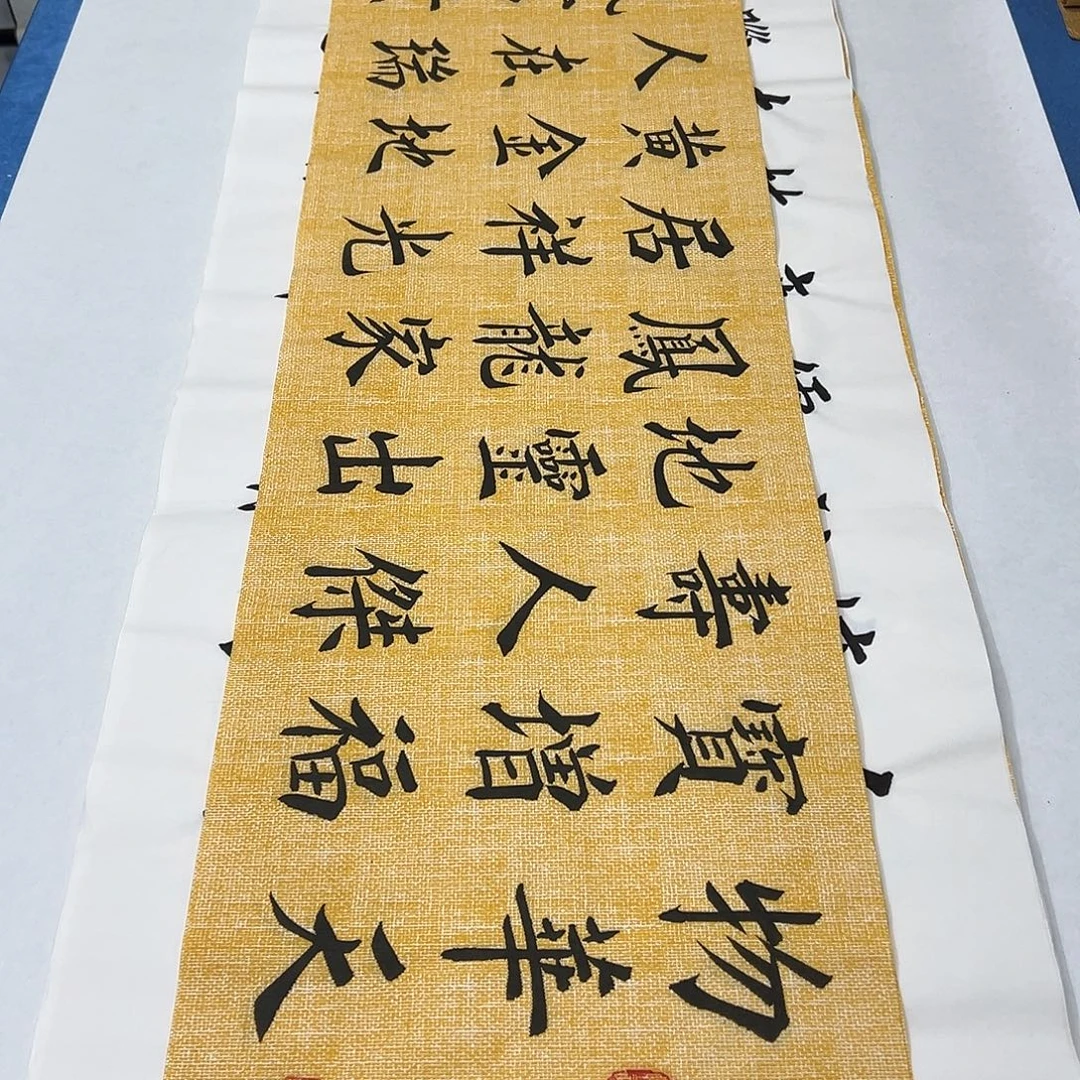 物華天
寶增福
壽人傑
地靈出
鳳龍家
居祥光
黃金地
人在瑞